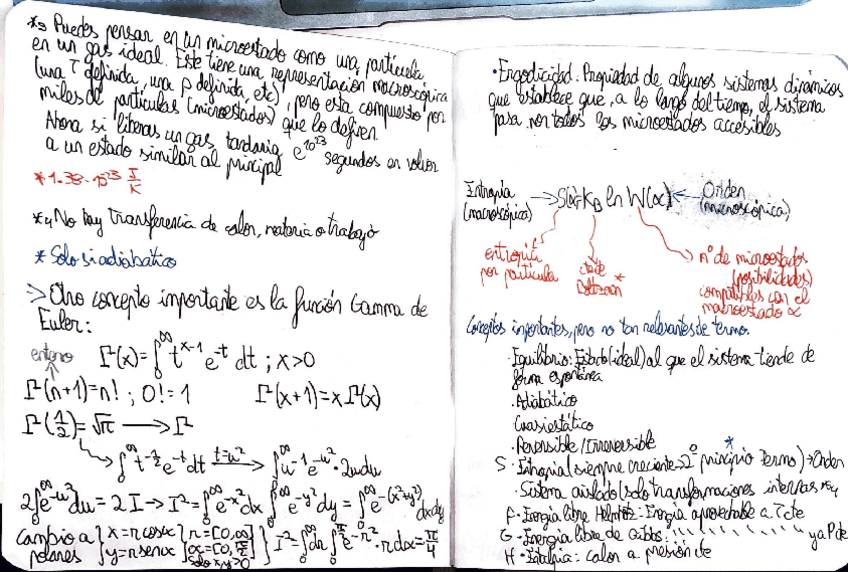 *3 Puedes pensar en un microestado como una partícula
en un gas ideal. Este tiene una representación macroscópica
(una T definida, una p definida, etc), pero esta compuesto por
miles de partículas (microestados) que lo definen
Ahora si liberas un gas, tardaría e^10^23 segundos en volver
a un estado similar al principal
*1.38·10^-23 J/K
*4 No hay transferencia de calor, materia o trabajo
* Solo si adiabático
=> Otro concepto importante es la función Gamma de
Euler:
entero
Γ(x)=∫₀^∞ t^(x-1) e^-t dt ; x>0
Γ(n+1)=n! ; 0!=1 Γ(x+1)=xΓ(x)
Γ(1/2)=√π → Γ
∫₀^∞ t^(-1/2) e^-t dt t=u² → ∫₀^∞ u^-1 e^-u² · 2u du
2∫₀^∞ e^-u² du = 2I → I²=∫₀^∞ e^-x² dx ∫₀^∞ e^-y² dy = ∫₀^∞ e^-(x²+y²) dxdy
Cambio a polares { x=r cosα y=r senα } { r=[0,∞] α=[0,π/2] solo x,y>0 } I²=∫₀^∞ dr ∫₀^(π/2) e^-r² · r dα = π/4
· Ergodicidad: Propiedad de algunos sistemas dinámicos
que establece que, a lo largo del tiempo, el sistema
pasa por todos los microestados accesibles
Entropía (macroscópica) → S(α)=K_B ln W(α) ← Orden (microscópica)
entropía por partícula
cte de Boltzmann *
nº de microestados
(posibilidades)
compatibles con el
macroestado α
Conceptos importantes, pero no tan relevantes de termo
· Equilibrio: Estado (ideal) al que el sistema tiende de
forma espontánea
· Adiabático
· Cuasiestático
· Reversible/Irreversible
S · Entropía (siempre creciente → 2º principio Termo) → Orden
*
· Sistema aislado (solo transformaciones internas *4
F · Energía libre Helmholtz: Energía aprovechable a T cte
G · Energía libre de Gibbs: '' '' '' '' y a P cte
H · Entalpía: calor a presión cte